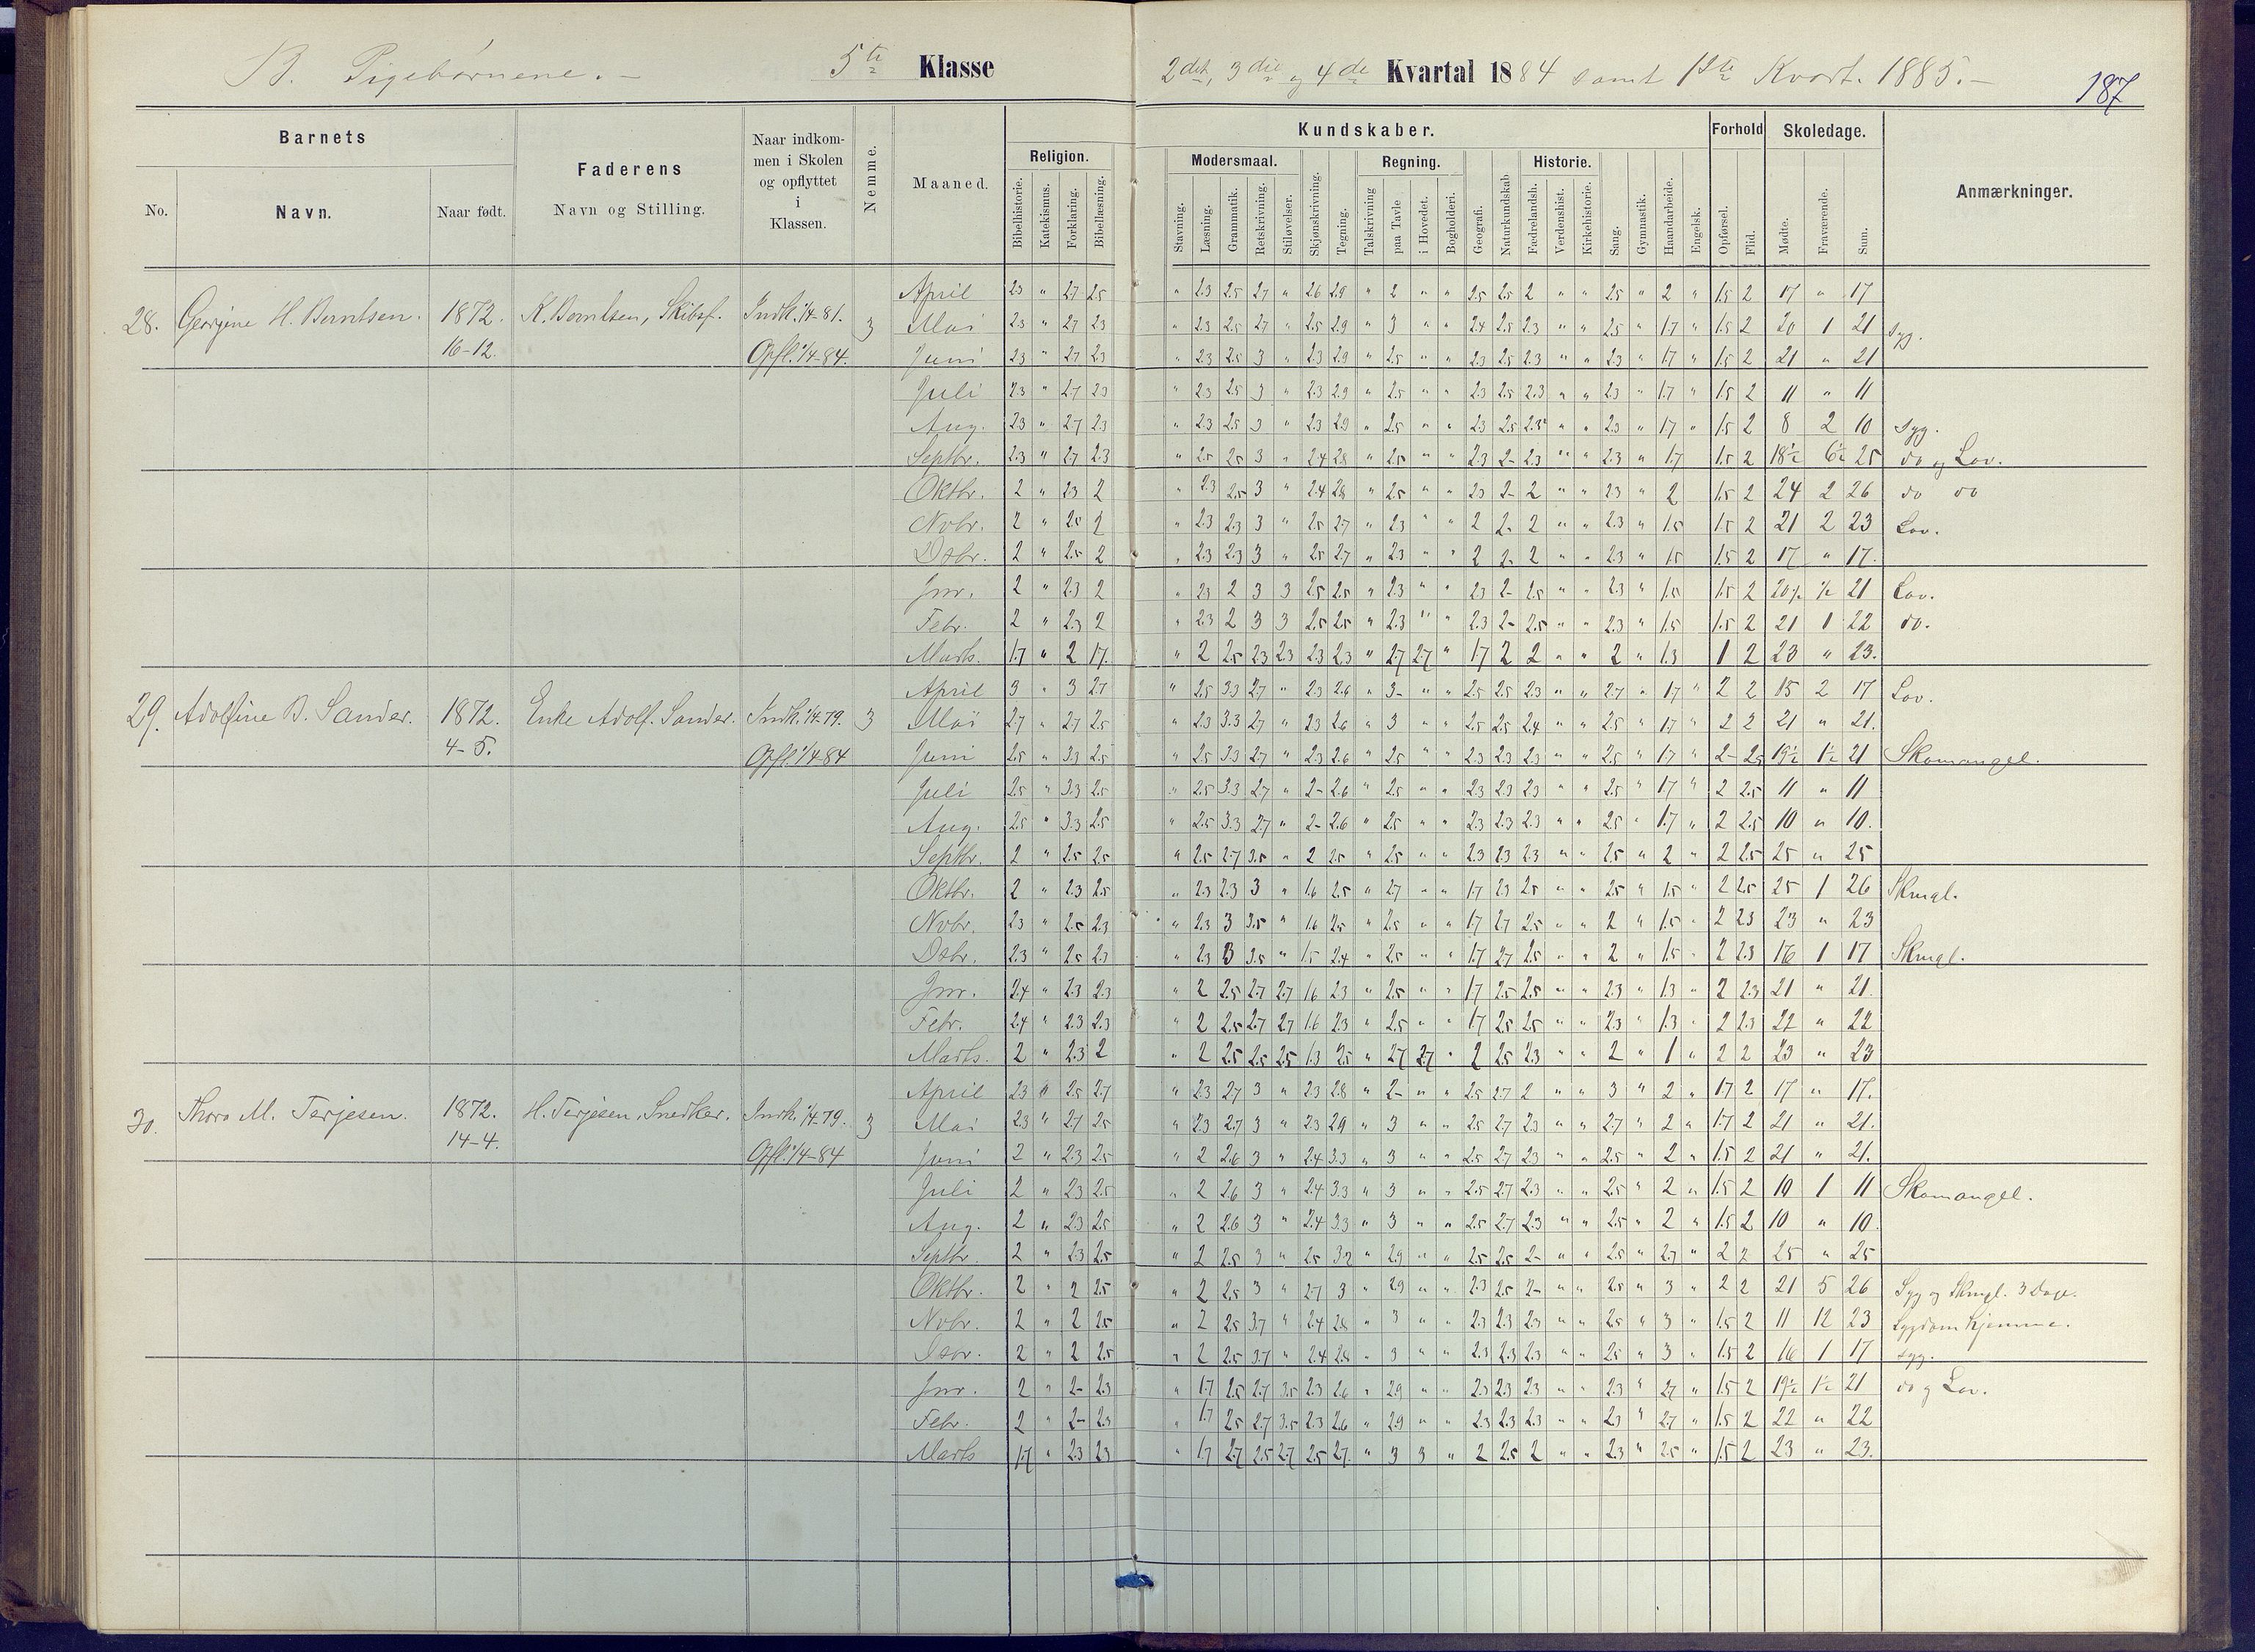 B. Pigebørnene. – 5te Klasse 2det, 3die og 4de Kvartal 1884 samt 1ste Kvart. 1885. –
187
Barnets
Faderens
Navn og Stilling.
Naar indkom-
men i Skolen
og opflyttet
i
Klassen.
Nemme.
Maaned.
Kundskaber.
Forhold
Skoledage.
Anmærkninger.
No.
Navn.
Naar født.
Religion.
Modersmaal.
Regning.
Historie.
Bibelhistorie.
Katekismus.
Forklaring.
Bibellæsning.
Stavning.
Læsning.
Grammatik.
Retskrivning.
Stiløvelser.
Skjønskrivning.
Tegning.
Talskrivning
paa Tavle
i Hovedet.
Bogholderi.
Geografi.
Naturkundskab
Fædrelandsh.
Verdenshist.
Kirkehistorie.
Sang.
Gymnastik.
Haandarbeide.
Engelsk.
Opførsel.
Flid.
Mødte.
Fraværende.
Sum.
28. Georgine H. Berntsen. 1872. K. Berntsen, Skibsf. Indk. 1/4-81. 3
16-12. Opfl. 1/4-84.
April 23 " 27 25 " 23 25 27 " 26 29 " 2 " " 25 25 2 " " 25 " 2 " 1.5 2 17 " 17
Mai 23 " 27 23 " 23 25 27 " 25 29 " 3 " " 24 25 23 " " 25 " 17 " 1.5 2 20 1 21 syg.
Juni 23 " 27 23 " 23 25 3 " 23 29 " 25 " " 23 25 23 " " 23 " 17 " 1.5 2 21 " 21
Juli 23 " 27 23 " 23 25 3 " 23 29 " 25 " " 23 25 23 " " 23 " 17 " 1.5 2 11 " 11
Aug. 23 " 27 23 " 23 25 3 " 23 29 " 25 " " 23 25 23 " " 23 " 17 " 1.5 2 8 2 10 syg.
Septbr. 23 " 27 23 " 25 25 3 " 24 28 " 25 " " 23 2- 23 " " 23 " 17 1.5 2 18½ 6½ 25 do og Lov.
Oktbr. 2 " 23 2 " 23 25 3 " 24 28 " 25 " " 23 2- 2 " " 23 " 2 1.5 2 24 2 26 do do
Nvbr. 2 " 25 2 " 23 23 3 " 25 27 " 23 " " 2 2- 2 " " 23 " 1.5 1.5 2 21 2 23 Lov.
Dsbr. 2 " 25 2 " 23 23 3 " 25 27 " 23 " " 2 2- 2 " " 23 " 1.5 1.5 2 17 " 17.
Jnr. 2 " 23 2 " 23 2 3 3 25 25 " 23 " " 23 2- 25 " " 23 " 1.5 1.5 2 20½ ½ 21 Lov.
Febr. 2 " 23 2 " 23 2 3 3 25 25 " 23 " " 23 2- 25 " " 23 " 1.5 1.5 2 21 1 22 do.
Marts. 17 " 2 17 " 2 25 23 23 23 23 " 27 27 " 17 2 2 " " 2 " 1.3 1 2 23 " 23.
29. Adolfine B. Sander. 1872. Enke Adolf. Sander. Indk. 1/4-79. 3
4-5. Opfl. 1/4-84
April 3 " 3 27 " 25 33 27 " 23 26 " 3- " " 25 25 23 " " 27 " 17 " 2 2 15 2 17 Lov.
Mai 27 " 27 25 " 23 33 27 " 23 26 " 3 " " 25 25 24 " " 25 " 17 " 2 2 21 " 21.
Juni 25 " 33 25 " 25 33 27 " 23 26 " 25 " " 23 23 23 " " 25 " 17 " 2- 25 19½ 1½ 21 Skomangel.
Juli 25 " 33 25 " 25 33 27 " 2- 26 " 25 " " 23 23 23 " " 25 " 17 " 2 25 11 " 11
Aug. 25 " 33 25 " 25 33 27 " 2- 26 " 25 " " 23 23 23 " " 25 " 17 " 2 25 10 " 10.
Septbr. 2 " 25 25 " 25 27 35 " 2 25 " 25 " " 23 23 23 " " 25 " 2 " 2 25 25 " 25
Oktbr. 2 " 23 25 " 23 23 3 " 16 25 " 27 " " 17 23 25 " " 25 " 15 " 2 25 25 1 26 Skmgl.
Nvbr. 23 " 25 23 " 23 3 35 " 16 25 " 25 " " 17 27 25 " " 2 " 15 " 2 23 23 " 23
Dsbr. 23 " 25 23 " 23 3 35 " 15 24 " 25 " " 17 27 25 " " 2 " 15 " 2 23 16 1 17 Skmgl.
Jnr. 24 " 23 23 " 2 25 27 27 16 23 " 25 " " 17 25 25 " " 23 " 13 " 2 23 21 " 21.
Febr. 24 " 23 23 " 2 25 27 27 16 23 " 25 " " 17 25 25 " " 23 " 13 " 2 23 22 " 22
Marts. 2 " 23 2 " 2 25 25 25 13 25 " 27 27 " 2 25 23 " " 2 " 1 " 2 2 23 " 23
30. Thora M. Terjesen. 1872. H. Terjesen, Snedker. Indk. 1/4-79. 3
14-4. Opfl. 1/4-84
April 23 " 25 27 " 23 27 3 " 23 28 " 2- " " 25 27 2 " " 3 " 2 " 17 2 17 " 17.
Mai 23 " 27 25 " 23 27 3 " 23 29 " 3 " " 25 27 23 " " 27 " 2 " 17 2 21 " 21.
Juni 2 " 23 25 " 2 26 3 " 24 33 " 3 " " 25 27 23 " " 25 " 2 " 15 2 21 " 21.
Juli 2 " 23 25 " 2 26 3 " 24 33 " 3 " " 25 27 23 " " 25 " 2 " 15 2 10 1 11 Skomangel.
Aug. 2 " 23 25 " 2 26 3 " 24 33 " 3 " " 25 27 23 " " 25 " 2 " 15 2 10 " 10.
Septbr. 2 " 23 25 " 2 25 3 " 25 32 " 29 " " 25 25 2- " " 25 " 27 " 2 2 25 " 25
Oktbr. 2 " 2 25 " 2 25 3 " 27 3 " 29 " " 23 25 2- " " 25 " 3 " 2 2 21 5 26 Syg og Skmgl. 3 Dage.
Nvbr. 2 " 2 25 " 2 25 37 " 24 28 " 3 " " 23 23 23 " " 25 " 3 " 15 2 11 12 23 Sygdom hjemme.
Dsbr. 2 " 2 25 " 2 25 37 " 24 28 " 3 " " 23 23 23 " " 25 " 3 " 15 2 16 1 17 syg.
Jnr. 2 " 2- 23 " 17 25 27 35 23 26 " 29 " " 23 23 23 " " 23 " 27 " 15 2 19½ 1½ 21 do og Lov.
Febr. 2 " 2- 23 " 17 25 27 35 23 26 " 29 " " 23 23 23 " " 23 " 27 " 15 2 22 " 22
Marts 17 " 23 23 " 17 27 25 27 25 27 " 3 3 " 2 25 2 " " 23 " 25 " 15 2 23 " 23.